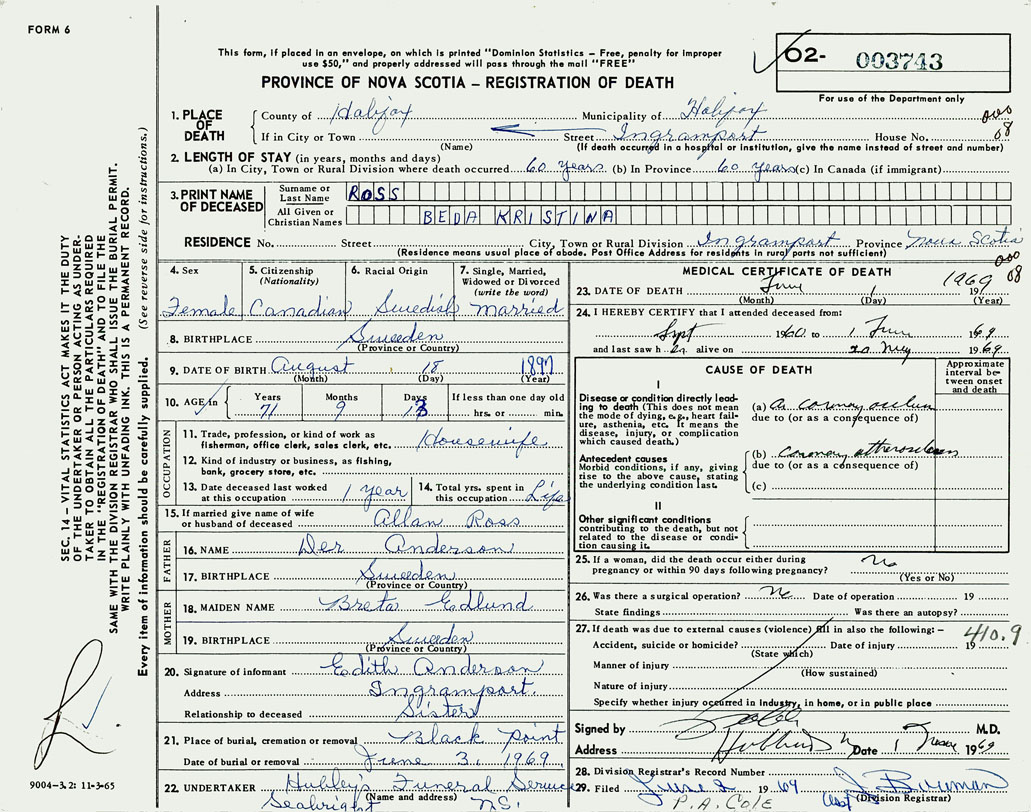 FORM 6
This form, if placed in an envelope, on which is printed "Dominion Statistics – Free, penalty for improper
use $50," and properly addressed will pass through the mail "FREE"
PROVINCE OF NOVA SCOTIA – REGISTRATION OF DEATH
O2- 003743
For use of the Department only
1. PLACE OF DEATH
County of Halifax Municipality of Halifax
If in City or Town Street Ingramport House No.
(Name) (If death occurred in a hospital or institution, give the name instead of street and number)
08
2. LENGTH OF STAY (in years, months and days)
(a) In City, Town or Rural Division where death occurred 60 years (b) In Province 60 years (c) In Canada (if immigrant)
3. PRINT NAME OF DECEASED
Surname or Last Name ROSS
All Given or Christian Names BEDA KRISTINA
RESIDENCE No. Street City, Town or Rural Division Ingramport Province Nova Scotia
(Residence means usual place of abode. Post Office Address for residents in rural parts not sufficient)
08
4. Sex 5. Citizenship (Nationality) 6. Racial Origin 7. Single, Married, Widowed or Divorced (write the word)
Female Canadian Swedish Married
8. BIRTHPLACE Sweden
(Province or Country)
9. DATE OF BIRTH August 18 1897
(Month) (Day) (Year)
10. AGE in Years Months Days If less than one day old
71 9 13 hrs. or min.
OCCUPATION
11. Trade, profession, or kind of work as fisherman, office clerk, sales clerk, etc. Housewife
12. Kind of industry or business, as fishing, bank, grocery store, etc.
13. Date deceased last worked at this occupation 1 year 14. Total yrs. spent in this occupation Life
15. If married give name of wife or husband of deceased Allan Ross
FATHER
16. NAME Der Anderson
17. BIRTHPLACE Sweden
(Province or Country)
MOTHER
18. MAIDEN NAME Breta Edlund
19. BIRTHPLACE Sweden
(Province or Country)
20. Signature of informant Edith Anderson
Address Ingramport.
Relationship to deceased Sister
21. Place of burial, cremation or removal Black Point
Date of burial or removal June 3, 1969
22. UNDERTAKER Hubley's Funeral Service
(Name and address)
Seabright N.S.
MEDICAL CERTIFICATE OF DEATH
23. DATE OF DEATH June 1 1969 19
(Month) (Day) (Year)
24. I HEREBY CERTIFY that I attended deceased from:
Sept 1960 to 1 June 1969
and last saw her alive on 20 May 1969
CAUSE OF DEATH
Approximate interval between onset and death
I
Disease or condition directly leading to death (This does not mean the mode of dying, e.g., heart failure, asthenia, etc. It means the disease, injury, or complication which caused death.)
(a) coronary
due to (or as a consequence of)
Antecedent causes
Morbid conditions, if any, giving rise to the above cause, stating the underlying condition last.
(b) coronary atherosclerosis
due to (or as a consequence of)
(c)
II
Other significant conditions contributing to the death, but not related to the disease or condition causing it.
25. If a woman, did the death occur either during pregnancy or within 90 days following pregnancy? No
(Yes or No)
26. Was there a surgical operation? No Date of operation 19
State findings Was there an autopsy?
27. If death was due to external causes (violence) fill in also the following: –
Accident, suicide or homicide? Date of injury 19
(State which)
410.9
Manner of injury
(How sustained)
Nature of injury
Specify whether injury occurred in Industry, in home, or in public place
Signed by M.D.
Address Hubbards Date 1 June 1969
28. Division Registrar's Record Number
29. Filed June 2 1969
(Division Registrar)
P.A. Cole
SEC. 14 – VITAL STATISTICS ACT MAKES IT THE DUTY
OF THE UNDERTAKER OR PERSON ACTING AS UNDER-
TAKER TO OBTAIN ALL THE PARTICULARS REQUIRED
IN THE "REGISTRATION OF DEATH" AND TO FILE THE
SAME WITH THE DIVISION REGISTRAR WHO SHALL ISSUE THE BURIAL PERMIT.
WRITE PLAINLY WITH UNFADING INK. THIS IS A PERMANENT RECORD.
Every item of information should be carefully supplied. (See reverse side for instructions.)
9004-3.2: 11-3-65